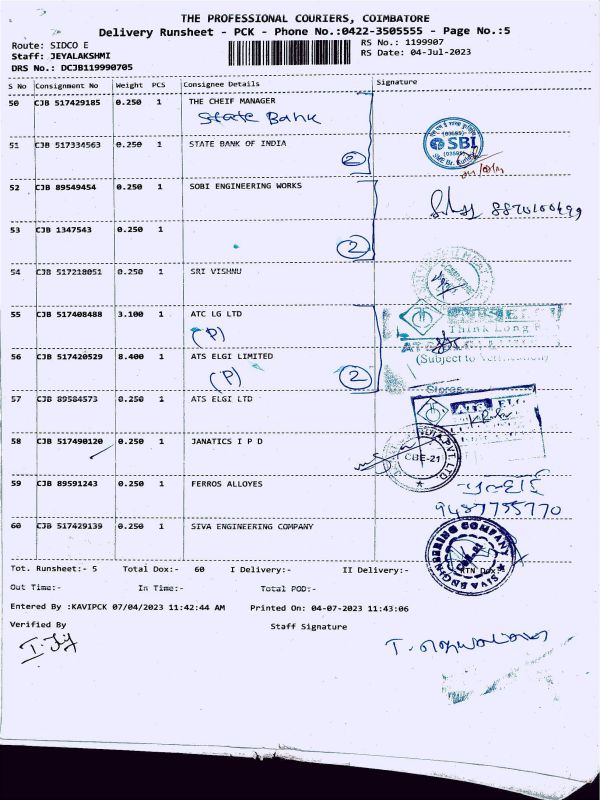 THE PROFESSIONAL COURIERS, COIMBATORE
Delivery Runsheet - PCK - Phone No.:0422-3505555 - Page No.:5
Route: SIDCO E
RS No.: 1199907
Staff: JEYALAKSHMI
RS Date: 04-Jul-2023
DRS No.: DCJB119990705
S No Consignment No Weight PCS Consignee Details Signature
50 CJB 517429185 0.250 1 THE CHEIF MANAGER
State Bank
51 CJB 517334563 0.250 1 STATE BANK OF INDIA
2
SBI
52 CJB 89549454 0.250 1 SOBI ENGINEERING WORKS
8870100499
53 CJB 1347543 0.250 1
2
54 CJB 517218051 0.250 1 SRI VISHNU
55 CJB 517408488 3.100 1 ATC LG LTD
(P)
Think Long
56 CJB 517420529 8.400 1 ATS ELGI LIMITED
(Subject to Verification)
(P)
2
Stores
57 CJB 89584573 0.250 1 ATS ELGI LTD
ATS ELGI
58 CJB 517490120 0.250 1 JANATICS I P D
CBE-21
59 CJB 89591243 0.250 1 FERROS ALLOYES
9487755770
60 CJB 517429139 0.250 1 SIVA ENGINEERING COMPANY
SIVA ENGINEERING COMPANY
Tot. Runsheet:- 5 Total Dox:- 60 I Delivery:- II Delivery:- RTN Dox:
Out Time:- In Time:- Total POD:-
Entered By :KAVIPCK 07/04/2023 11:42:44 AM Printed On: 04-07-2023 11:43:06
Verified By Staff Signature